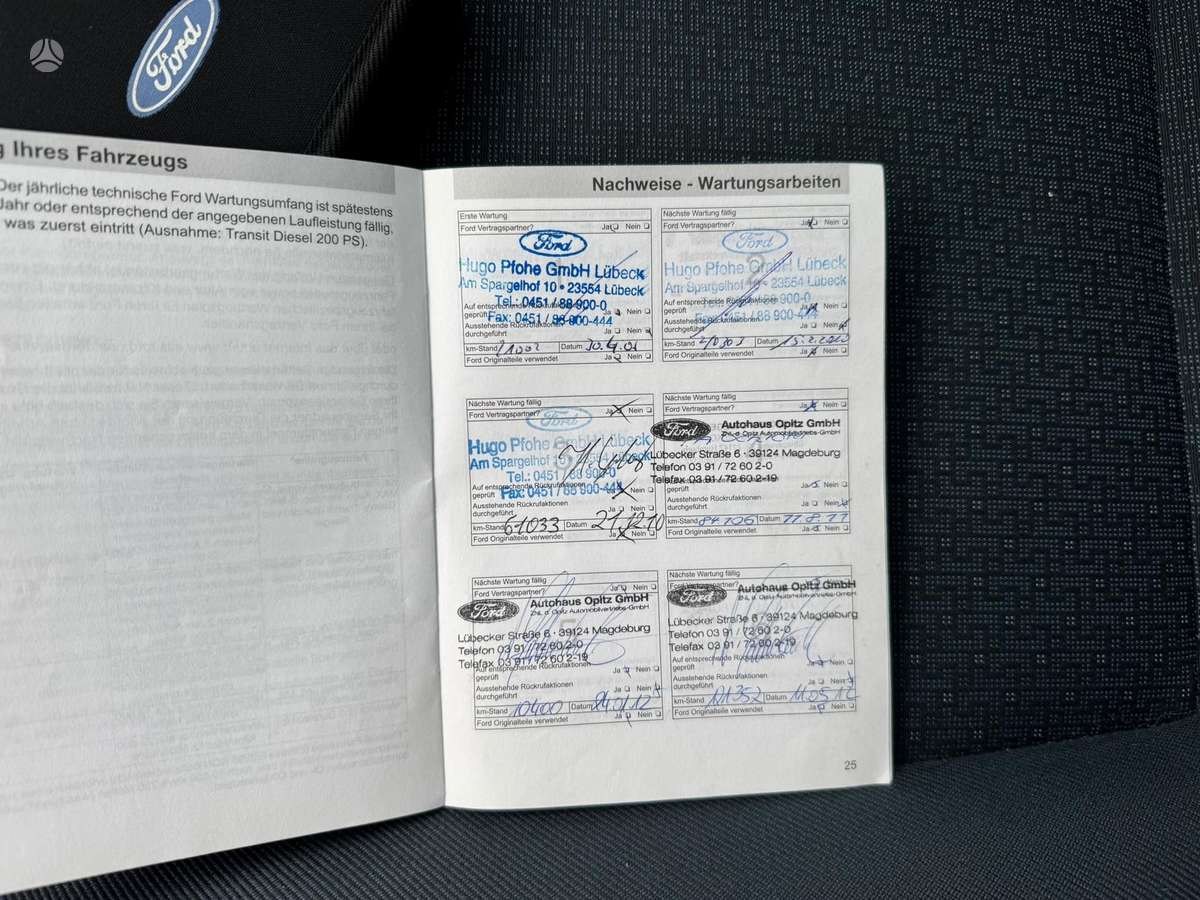 Ford
g Ihres Fahrzeugs
Der jährliche technische Ford Wartungsumfang ist spätestens
Jahr oder entsprechend der angegebenen Laufleistung fällig,
was zuerst eintritt (Ausnahme: Transit Diesel 200 PS).
Nachweise - Wartungsarbeiten
Erste Wartung
Ford Vertragspartner? Ja Nein
Ford
Hugo Pfohe GmbH Lübeck
Am Spargelhof 10 • 23554 Lübeck
Tel.: 0451 / 88 900-0
Auf entsprechende Rückrufaktionen
geprüft Ja Nein
Fax: 0451 / 88 900-444
Ausstehende Rückrufaktionen
durchgeführt Ja Nein
km-Stand Datum
Ford Originalteile verwendet Ja Nein
Nächste Wartung fällig
Ford Vertragspartner? Ja Nein
Ford
Hugo Pfohe GmbH Lübeck
Am Spargelhof 10 • 23554 Lübeck
900-0
Auf entsprechende Rückrufaktionen
geprüft Ja Nein
Ausstehende Rückrufaktionen
durchgeführt Ja Nein
km-Stand Datum 15.2.2010
Ford Originalteile verwendet Ja Nein
Nächste Wartung fällig
Ford Vertragspartner? Ja Nein
Ford
Hugo Pfohe GmbH Lübeck
Am Spargelhof
Tel.: 0451 / 88 900-0
Auf entsprechende Rückrufaktionen
geprüft Nein
Fax: 0451 / 88 900-444
Ausstehende Rückrufaktionen
durchgeführt Ja Nein
km-Stand 61033 Datum 21.12.10
Ford Originalteile verwendet Ja Nein
Nächste Wartung fällig
Ford Vertragspartner? Ja Nein
Ford
Autohaus Opitz GmbH
ZNL d. Opitz Automobilvertriebs-GmbH
Lübecker Straße 6 · 39124 Magdeburg
Telefon 03 91 / 72 60 2-0
Telefax 03 91 / 72 60 2-19
geprüft Ja Nein
Ausstehende Rückrufaktionen
durchgeführt Ja Nein
km-Stand 84706 Datum 11.8.11
Ford Originalteile verwendet Ja Nein
Nächste Wartung fällig
Ford Vertragspartner? Ja Nein
Ford
Autohaus Opitz GmbH
ZNL d. Opitz Automobilvertriebs-GmbH
Lübecker Straße 6 · 39124 Magdeburg
Telefon 03 91 / 72 60 2-0
Telefax 03 91 / 72 60 2-19
Auf entsprechende Rückrufaktionen
geprüft Ja Nein
Ausstehende Rückrufaktionen
durchgeführt Ja Nein
km-Stand 10400 Datum 24.01.12
Ford Originalteile verwendet Ja Nein
Nächste Wartung fällig
Ford Vertragspartner?
Ford
Autohaus Opitz GmbH
ZNL d. Opitz Automobilvertriebs-GmbH
Lübecker Straße 6 · 39124 Magdeburg
Telefon 03 91 / 72 60 2-0
Telefax 03 91 / 72 60 2-19
Auf entsprechende Rückrufaktionen
geprüft Ja Nein
Ausstehende Rückrufaktionen
durchgeführt Ja Nein
km-Stand 121352 Datum 11.05.12
Ford Originalteile verwendet Ja Nein
25